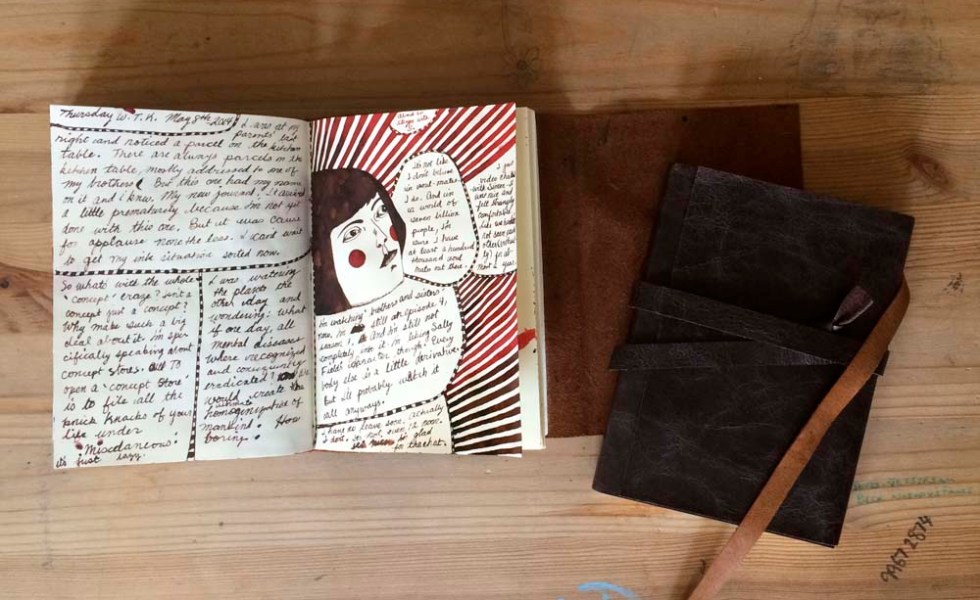 Thursday W.T.K. May 8th 2014
I was at my
parents' but
right and noticed a parcel on the kitchen
table. There are always parcels on the
kitchen table, mostly addressed to one of
my brothers. But this one had my name
on it and I knew. My new journal! It arrived
a little prematurely because I'm not yet
done with this one. But it was cause
for applause none the less. I can't wait
to get my situation sorted now.
So what's with the whole
'concept' craze? Isn't a
concept just a concept?
Why make such a big
deal about it. I'm spe-
cifically speaking about
concept stores. To
open a 'concept store'
is to file all the
knick knacks of your
life under
'Miscelaneous'.
it's just lazy.
I was watering
the plants the
other day and
wondering: what
if one day, all
mental diseases
where recognized
and consequently
eradicated?
would create the
ultimate
homogenization of
mankind. How
boring.
It's not like
I don't believe
in soul-mates
I do. And in
a world of
seven billion
people, I'm
sure I have
at least a hundred
thousand soul
mates out there.
I just
video
with
was nice and
felt strangely
comfortable
not seen each
other
I'm watching 'brothers and sisters'
now, I'm still at episode 4,
and I'm still not
completely into it. I'm liking Sally
Fields character though. Every
body else is a little derivative.
but I'll probably watch it
all anyways.
actually
I have to leave soon.
I don't, it's not even 12 now.
so glad
for that.
BECK
9967 2874